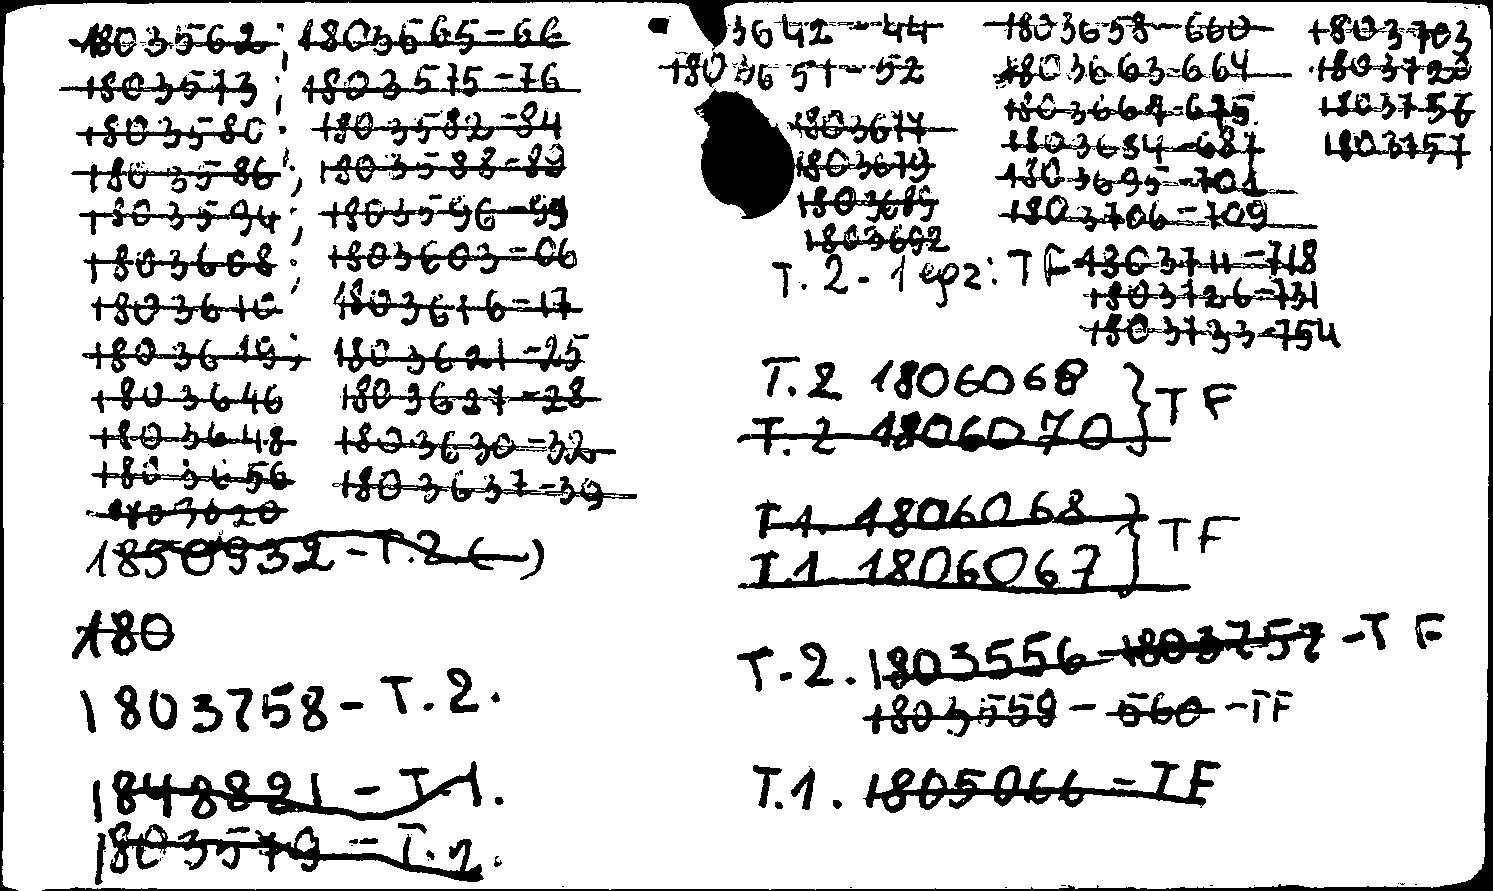 1803562; 1803565-66
1803573; 1803575-76
1803580; 1803582-84
1803586; 1803588-89
1803594; 1803596-99
1803608; 1803603-06
1803610 1803616-17
1803619; 1803621-25
1803646 1803627-28
1803648 1803630-32
1803656 1803637-39
1803620
1850932-T.2 ( )
180
1803758-T.2.
1848821-T.1.
1803579-T.2.
3642-44
1803651-52
1803677
1803679
1803689
1803692
1803658-660
1803663-664
1803669-675
1803684-687
1803695-701
1803706-709
1803703
1803720
1803756
1803757
T.2-1 egz: TF 1803711-718
1803726-731
1803733-754
T.2 1806068 } TF
T.2 1806070
T.1. 1806068 } TF
T.1. 1806067
T.2. 1803556-1803757-TF
1803559-560-TF
T.1. 1805066-TF